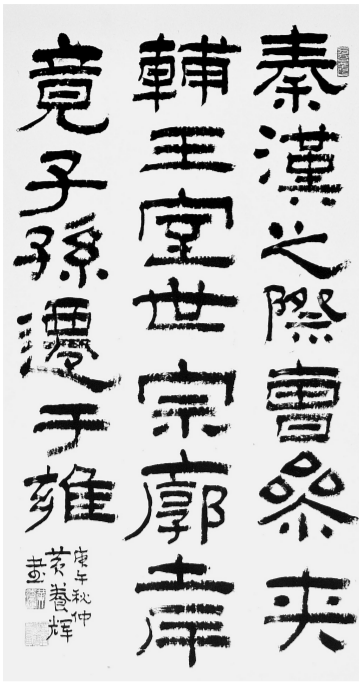 秦漢之際曹參夾
輔王室世宗廓土斥
竟子孫遷于雍
庚午秋仲
黄養輝
書